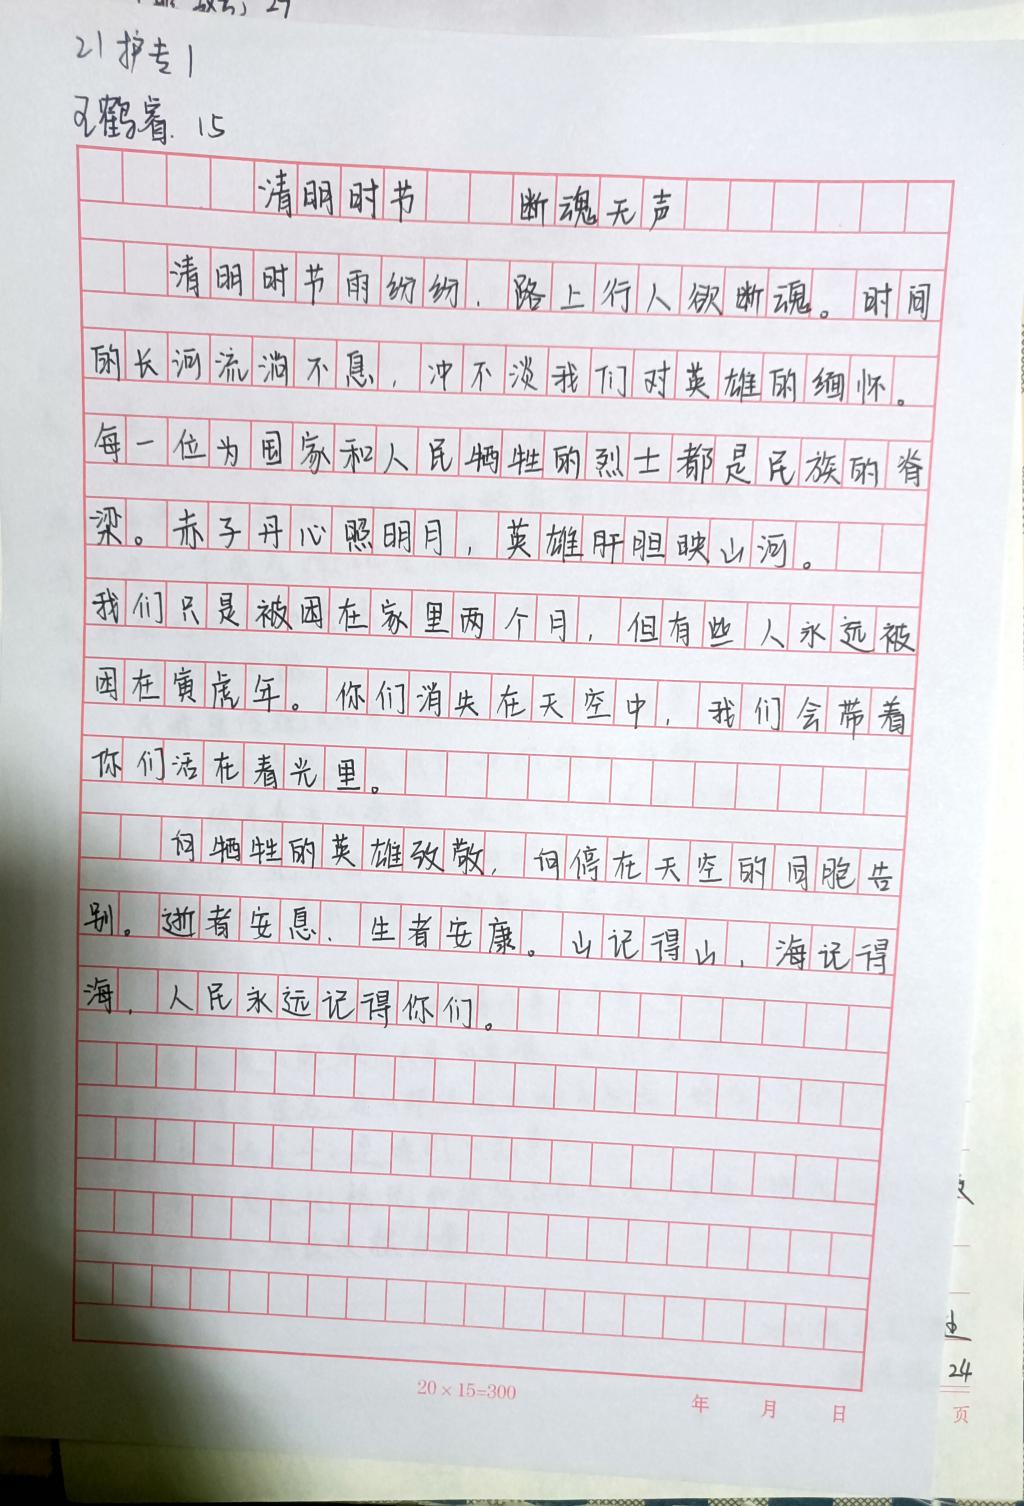 21护专1
王鹤睿. 15
清明时节 断魂无声
清明时节雨纷纷，路上行人欲断魂。时间
的长河流淌不息，冲不淡我们对英雄的缅怀。
每一位为国家和人民牺牲的烈士都是民族的脊
梁。赤子丹心照明月，英雄肝胆映山河。
我们只是被困在家里两个月，但有些人永远被
困在寅虎年。你们消失在天空中，我们会带着
你们活在春光里。
向牺牲的英雄致敬，向停在天空的同胞告
别。逝者安息、生者安康。山记得山，海记得
海，人民永远记得你们。
20×15=300
年 月 日
24
页